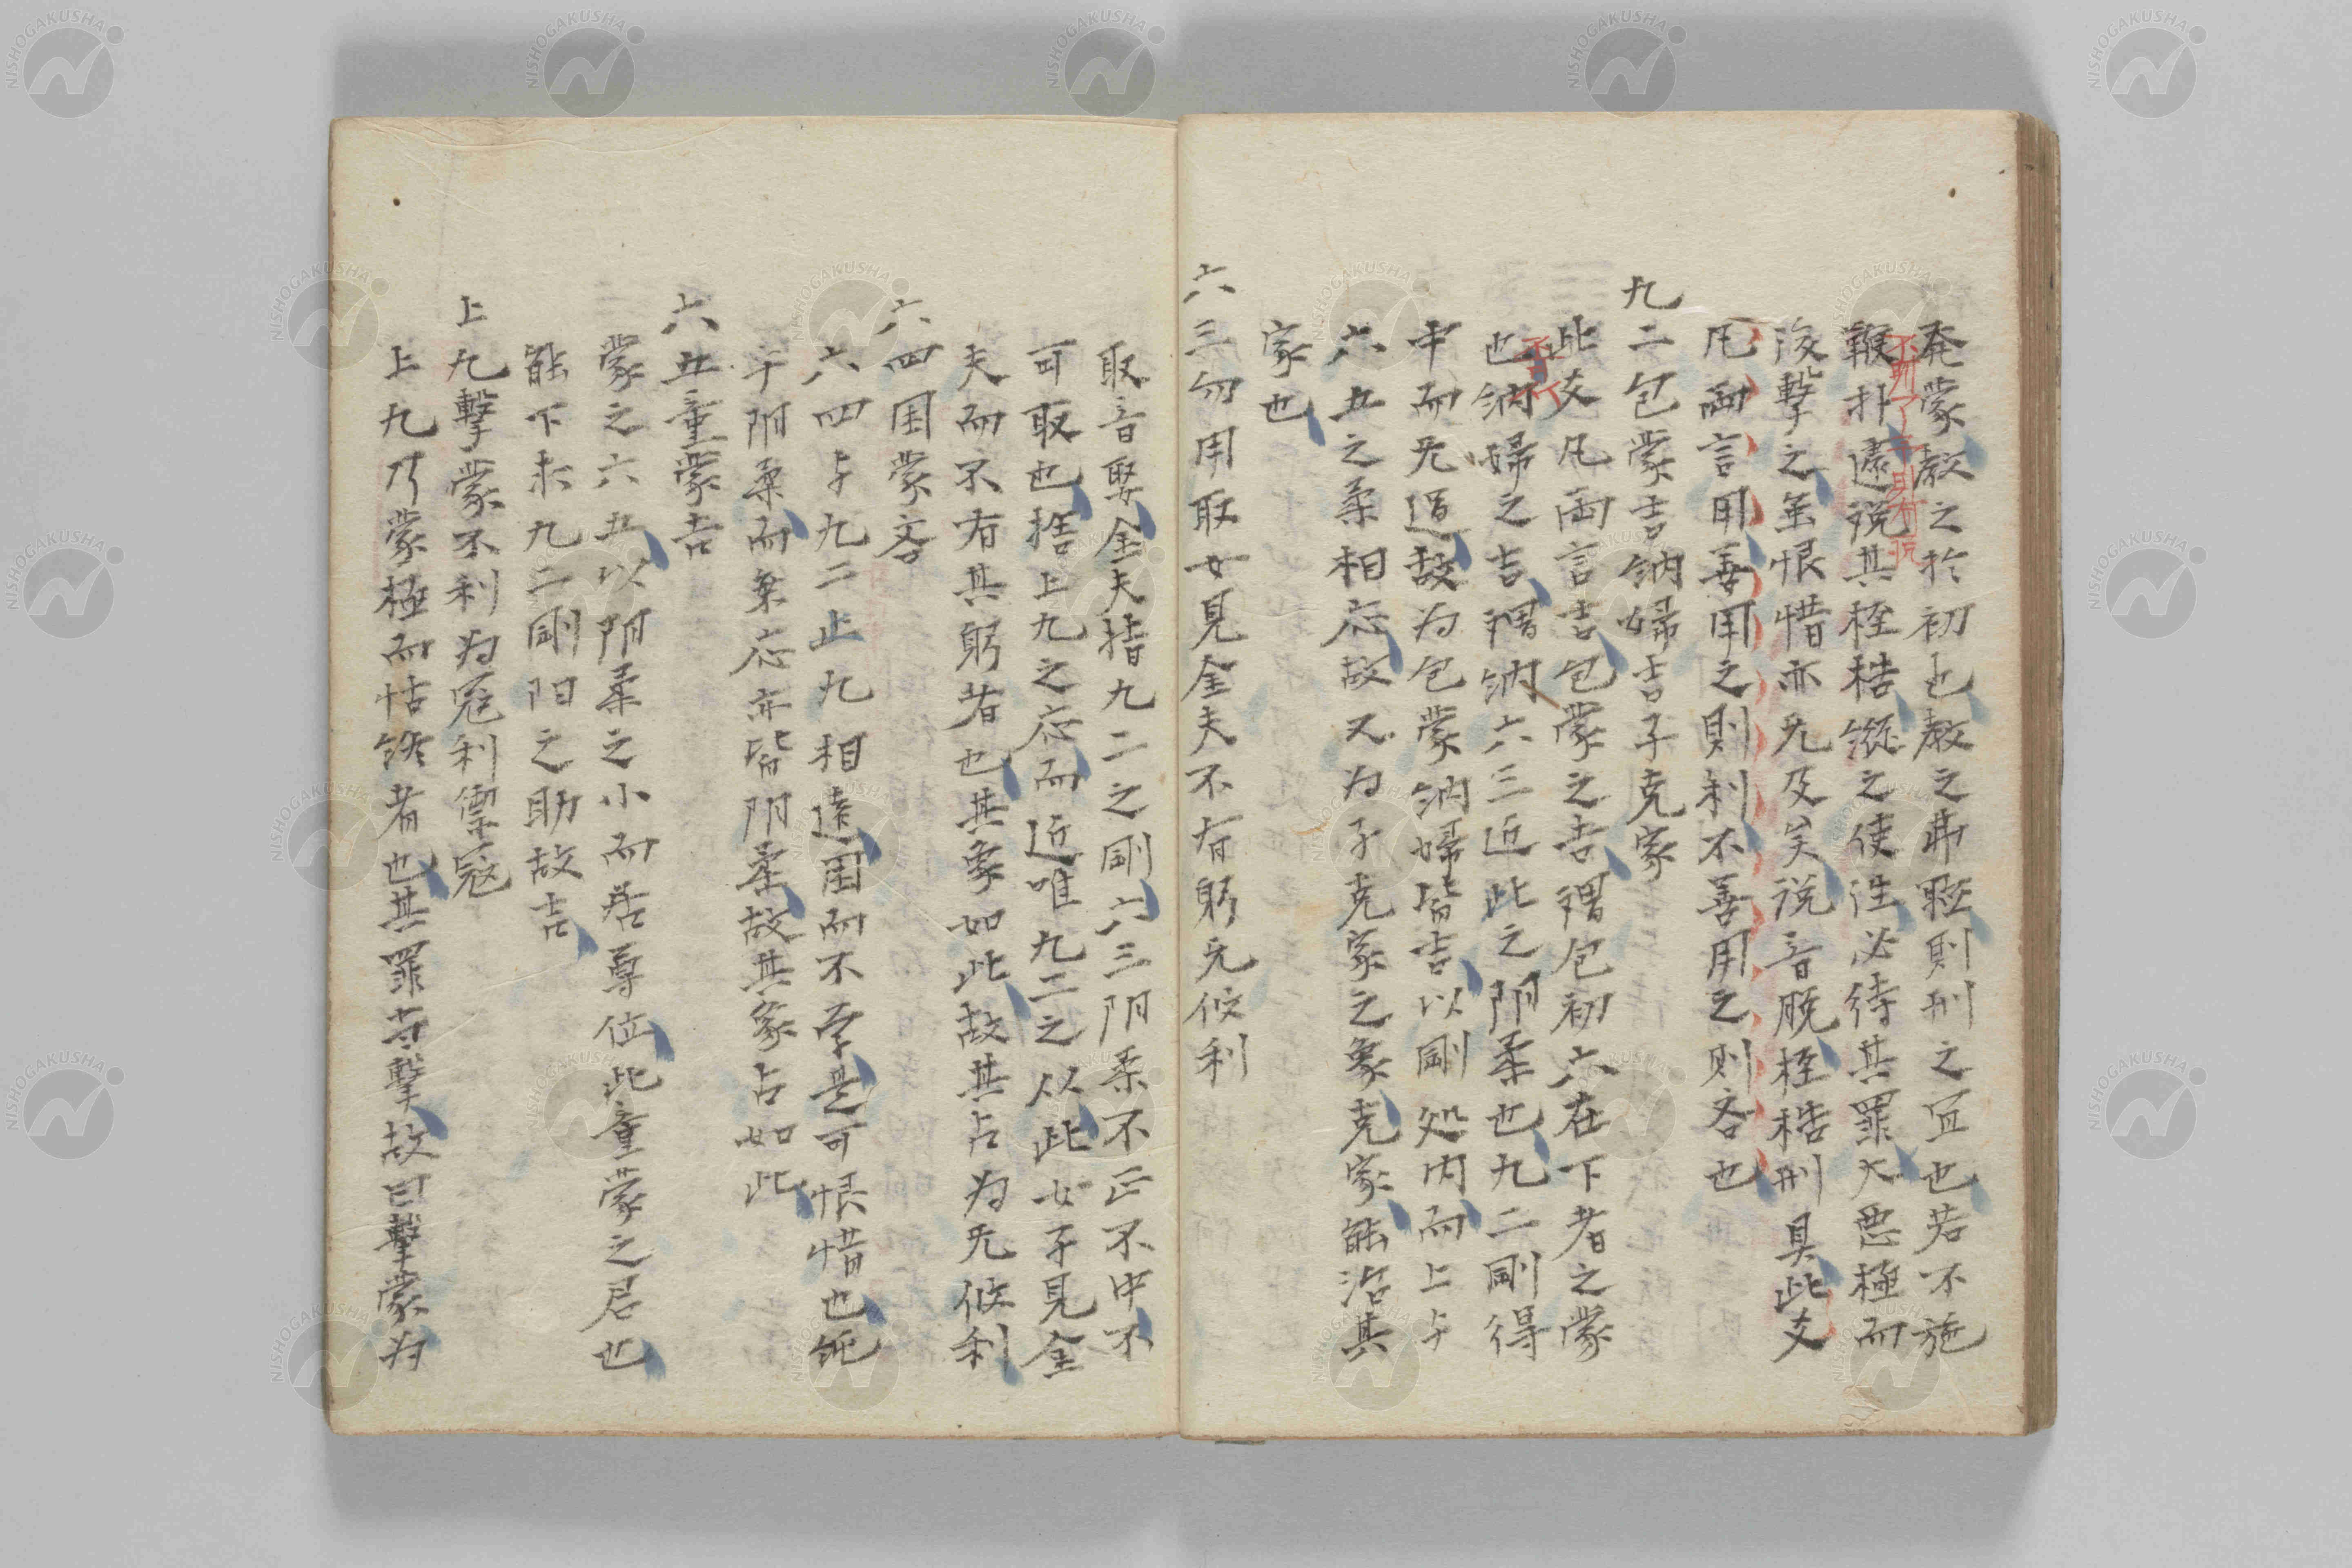 発蒙教之於初也教之弗聴則刑之宜也若不施
鞭扑遽説其桎梏縦之使往必待其罪大悪極而
後撃之虽悔惜亦无及矣説音脱桎梏刑具此爻
凡両言用善用之則利不善用之則吝也
九二包蒙吉納婦吉子克家
此爻凡両言吉包蒙之吉謂包初六在下者之蒙
也納婦之吉謂納六三近比之阴柔也九二剛得
中而无過故为包蒙納婦皆吉以剛処内而上与
六五之柔相応故又为子克家之象克家能治其
家也
六三勿用取女見金夫不有躬无攸利
取音娶金夫指九二之剛六三阴柔不正不中不
可取也捨上九之応而近唯九二之从此女子見金
夫而不有其躬者也其象如此故其占为无攸利
六四困蒙吝
六四与九二上九相遠困而不学是可恨惜也純
乎阴柔而乘応亦皆阴柔故其象占如此
六五童蒙吉
蒙之六五以阴柔之小而居尊位此童蒙之君也
能下求九二剛阳之助故吉
上九撃蒙不利为寇利禦寇
上九乃蒙極而怙終者也其罪当撃故曰撃蒙为
NISHOGAKUSHA